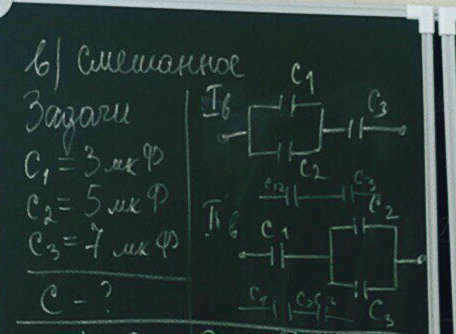 в) смешанное
Задачи
C₁ = 3 мкФ
C₂ = 5 мкФ
C₃ = 7 мкФ
C - ?
I в
C₁
C₃
C₂
C₁₂ C₃
II в
C₁
C₂
C₃
C₁